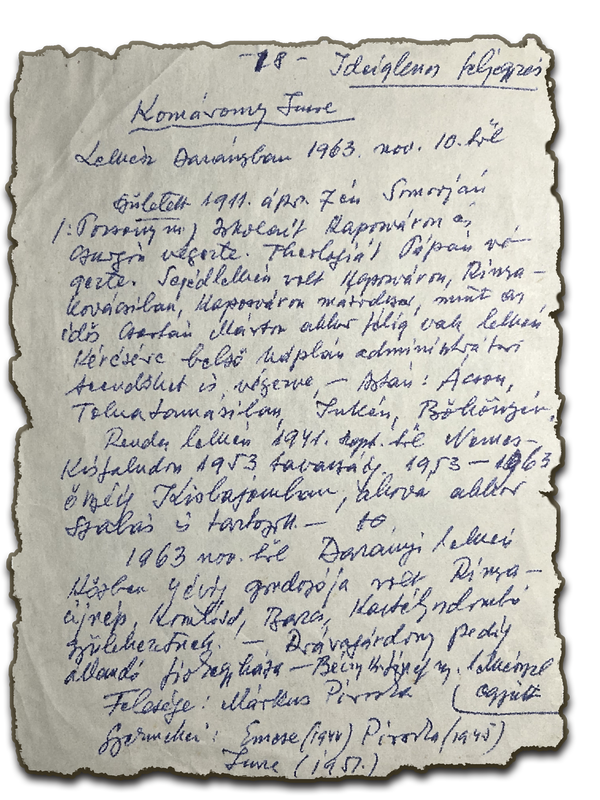 - 18 - Ideiglenes feljegyzés
Komáromy Imre
Lelkész Darányban 1963. nov. 10. től
Született 1911. ápr. 7-én Somorján
/: Pozsony m/ Iskoláit Kaposváron és
Csurgón végezte. Theologiát Pápán vé-
gezte. Segédlelkész volt Kaposváron, Rinya-
kovácsiban, Kaposváron másodszor, mint az
idős Csertán Márton akkor félig vak lelkész
kérésére belső káplán adminisztrátori
teendőket is végezve — Aztán: Ácson,
Tolnatamásiban, Inkén, Bőhönyén,
Rendes lelkész 1941. szept. től Nemes-
Kisfaludon 1953 tavaszáig, 1953 — 1963
őszéig Kisbajomban, ahova akkor
Szabás is tartozott. —
1963 nov. től Darányi lelkész
Közben évig gondozója volt Rinya-
újnép, Komlósd, Barcs, Kastélyosdombó
gyülekezetnek. — Drávagárdony pedig
állandó fiókegyháza —
Felesége: Márkus Piroska együtt
Gyermekei: Emese (1944) Piroska (1945)
Imre (1951.)